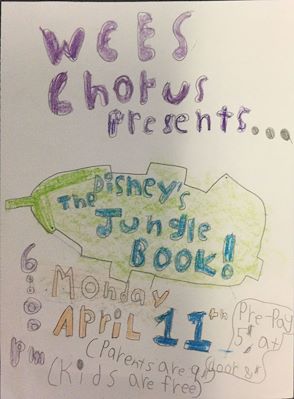 WCES
Chorus
Presents...
The Disney's
Jungle
Book!
6:00 pm
Monday
April 11th
Pre-Pay
5$ at
door 8$
(Parents are
(Kids are free)